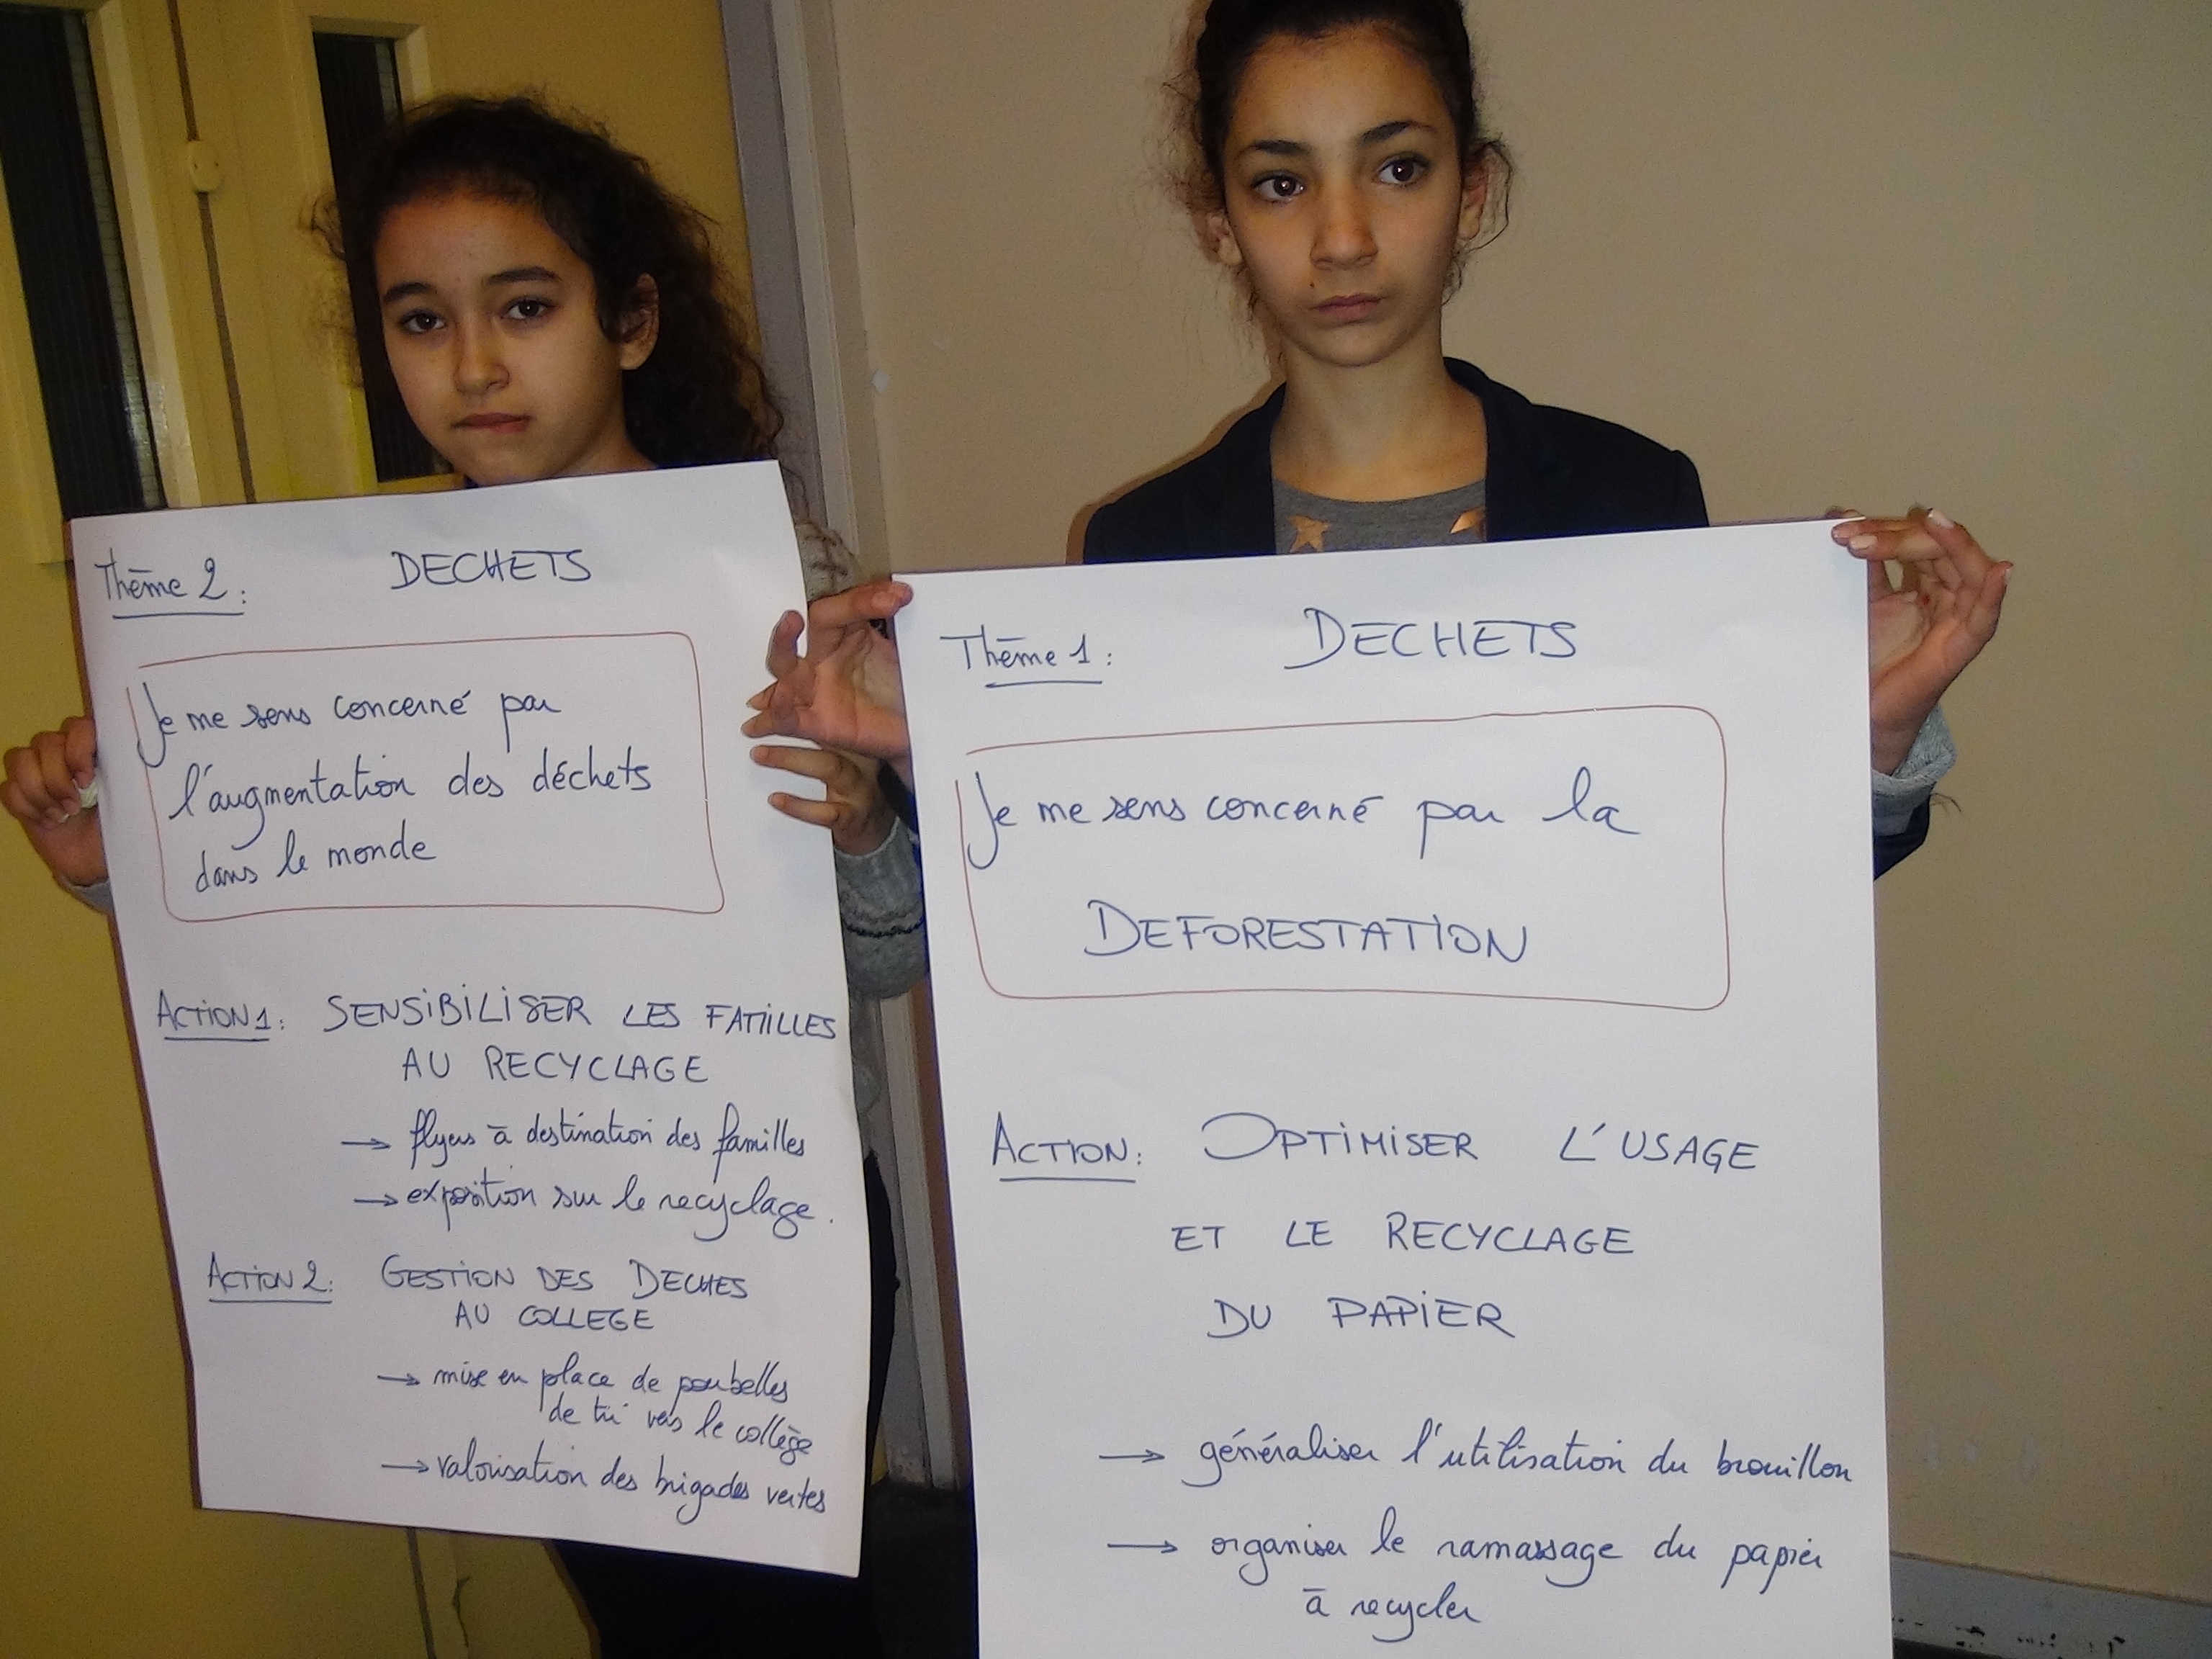 Thème 2 :
DECHETS
Je me sens concerné par
l'augmentation des déchets
dans le monde
ACTION 1 : SENSIBILISER LES FAMILLES
AU RECYCLAGE
→ flyers à destination des familles
→ exposition sur le recyclage.
ACTION 2 : GESTION DES DECHES
AU COLLEGE
→ mise en place de poubelles
de tri vers le collège
→ valorisation des brigades vertes
Thème 1 :
DECHETS
Je me sens concerné par la
DEFORESTATION
ACTION : OPTIMISER L'USAGE
ET LE RECYCLAGE
DU PAPIER
→ généraliser l'utilisation du brouillon
→ organiser le ramassage du papier
à recycler